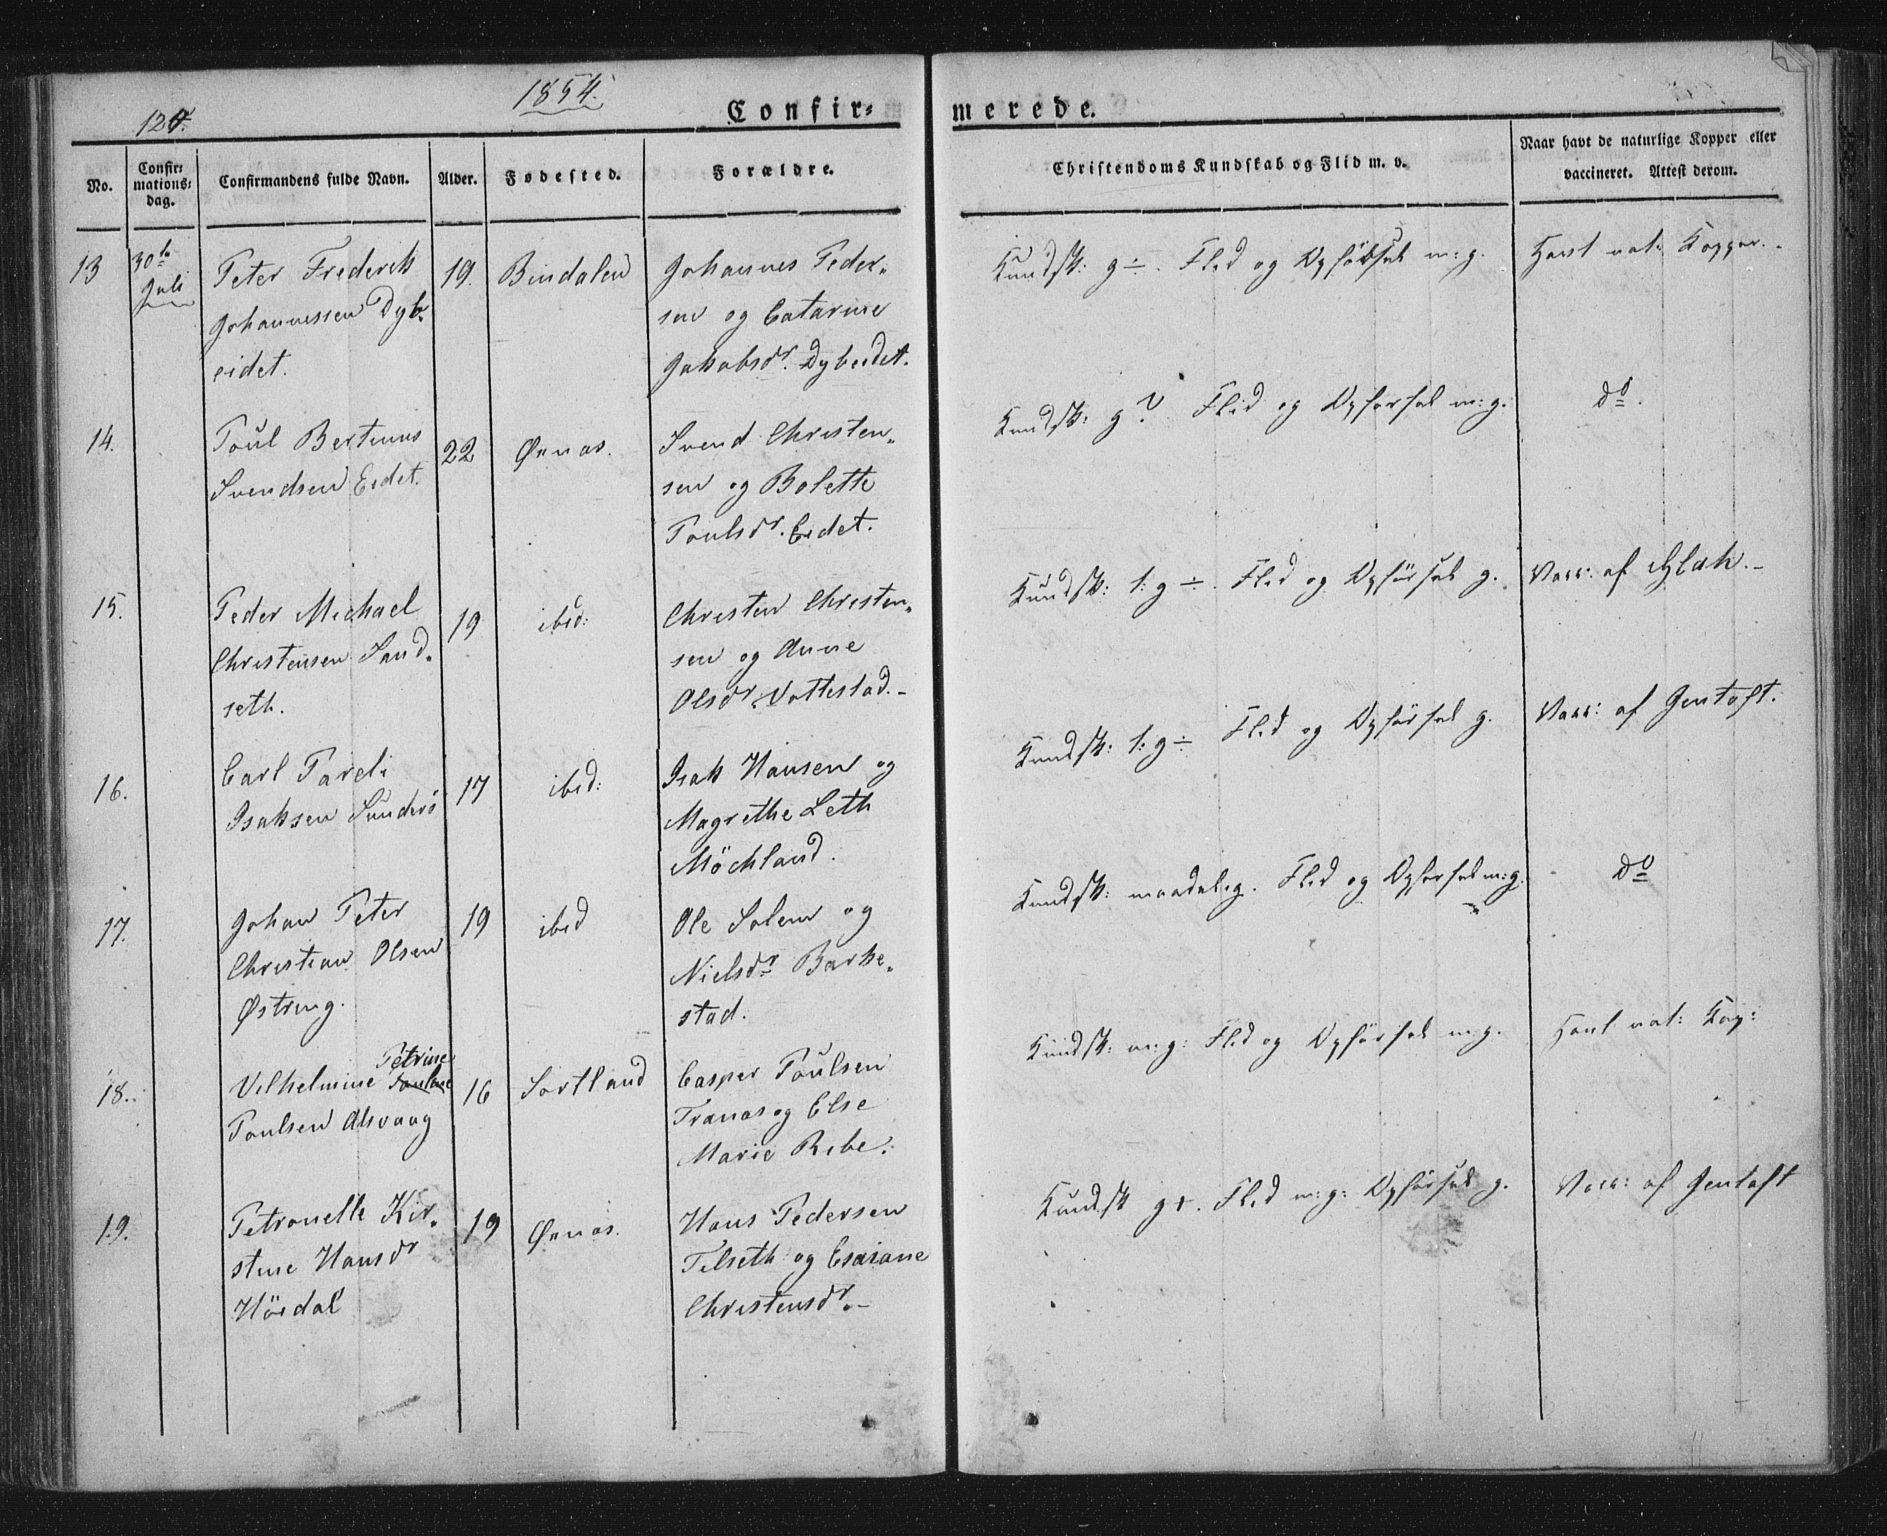 120.
1854.
Confirmerede.
No.
Confirmationsdag.
Confirmandens fulde Navn.
Alder.
Fødested.
Forældre.
Christendoms Kundskab og Flid m. v.
Naar havt de naturlige Kopper eller
vaccineret. Attest derom.
13
30te
Juli
Peter Frederik
Johannessen Dyb-
eidet.
19.
Bindalen
Johannes Peder-
sen og Catarine
Jakobsdr. Dybeidet.
Kundsk: g÷. Flid og Opførsel m:g.
Havt nat: Kopper.
14.
Poul Bertinus
Svendsen Eidet.
22
Øxnæs.
Svend Christen-
sen og Bolette
Poulsdr. Eidet.
Kundsk: g? Flid og Opførsel m:g.
Do.
15.
Peder Michael
Christensen Sand-
seth.
19
ibid:
Christen Christen-
sen og Anne
Olsdr Vottestad.
Kundsk: t:g÷. Flid og Opførsel g.
Vacc: af
16.
Carl Pareli
Isaksen Sunderö
17
ibid:
Isak Hansen og
Magrethe Leth
Möchland.
Kundsk: t:g÷ Flid og Opførsel g.
Vacc: af Gentoft.
17.
Johan Peter
Christian Olsen
Østring.
19
ibid
Ole Solem og
Nielsdr Barke-
stad.
Kundsk: maadelig. Flid og Opførsel m:g.
Do
18.
Petrine
Vilhelmine Pauline
Poulsen Alsvaag
16
Sortland
Casper Poulsen
Tranæs og Else
Marie Ribe.
Kundsk: m:g: Flid og Opførsel m:g.
Havt nat: Kop:
19.
Petronelle Kir-
stine Hansdr
Höidal
19
Øxnæs.
Hans Pedersen
Tilseth og Esaiane
Christensdr.
Kundsk g+. Flid m:g: Opførsel g.
Vacc: af Gentoft